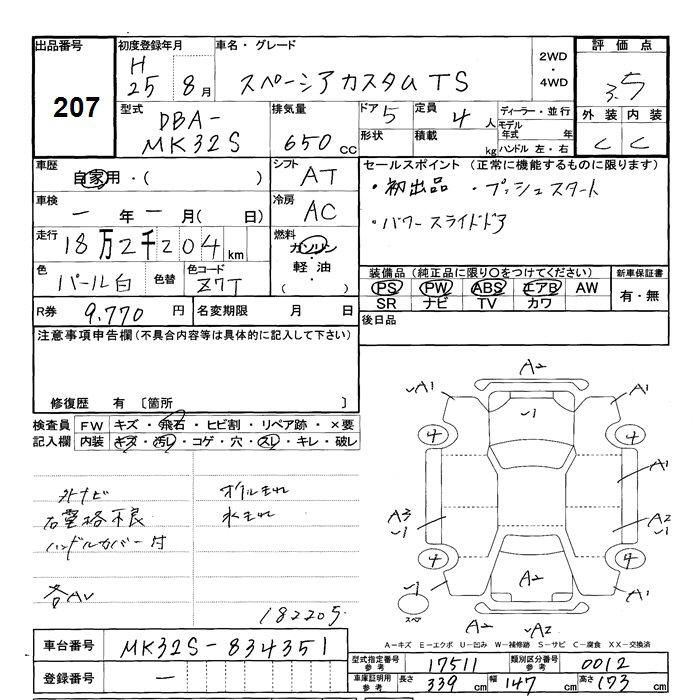 出品番号
207
初度登録年月
H
25 8月
車名・グレード
スペーシアカスタムTS
2WD
・
4WD
評価点
3.5
外装 内装
C C
型式
DBA-
MK32S
排気量
650 cc
ドア 5
形状
定員 4 人
積載 kg
ディーラー・並行
モデル年式 年
ハンドル 左・右
車歴
自家用・( )
シフト
AT
車検
ー年ー月( 日)
冷房
AC
走行
18万2千204km
燃料
ガソリン
・
軽油
・
( )
色
パール白
色替
色コード
Z7T
R券 9,770 円
名変期限 月 日
セールスポイント(正常に機能するものに限ります)
・初出品 ・プッシュスタート
・パワースライドドア
装備品(純正品に限り○をつけてください)
PS PW ABS エアB AW
SR ナビ TV カワ
新車保証書
有・無
後日品
注意事項申告欄(不具合内容等は具体的に記入して下さい)
修復歴 有 〔箇所 〕
検査員
記入欄
FW キズ・飛石・ヒビ割・リペア跡・×要
内装 キズ・汚レ・コゲ・穴・スレ・キレ・破レ
外ナビ
オイルもれ
水もれ
ハンドルカバー付
各AU
182205
A2
A1
A1
1
4
4
A1
A3
1
A2
1
4
4
1
A2
A1
スペア
A2
A-キズ E-エクボ U-凹み W-補修跡 S-サビ C-腐食 XX-交換済
車台番号
MK32S-834351
登録番号
ー
型式指定番号
参考
17511
類別区分番号
参考
0012
車庫証明用
参考
長さ 339 cm 幅 147 cm 高さ 173 cm